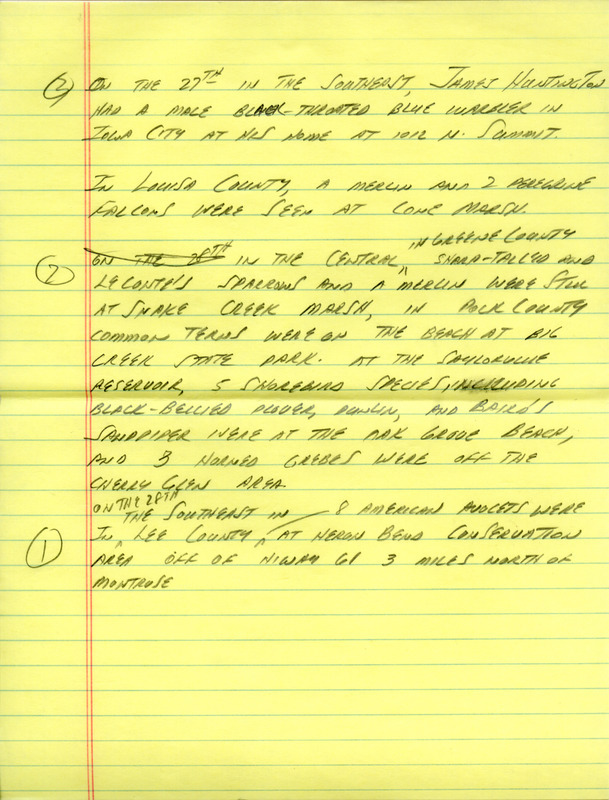 (2) ON THE 27TH IN THE SOUTHEAST, JAMES HUNTINGTON
HAD A MALE BLACK-THROATED BLUE WARBLER IN
IOWA CITY AT HIS HOME AT 1012 N. SUMMIT.
IN LOUISA COUNTY, A MERLIN AND 2 PEREGRINE
FALCONS WERE SEEN AT CONE MARSH.
IN GREENE COUNTY
(2) ON THE 28TH IN THE CENTRAL, SHARP-TAILED AND
LECONTE'S SPARROWS AND A MERLIN WERE STILL
AT SNAKE CREEK MARSH, IN POLK COUNTY
COMMON TERNS WERE ON THE BEACH AT BIG
CREEK STATE PARK. AT THE SAYLORVILLE
RESERVOIR, 5 SHOREBIRD SPECIES, INCLUDING
BLACK-BELLIED PLOVER, DUNLIN, AND BAIRD'S
SANDPIPER WERE AT THE OAK GROVE BEACH,
AND 3 HORNED GREBES WERE OFF THE
CHERRY GLEN AREA.
ON THE 28TH
THE SOUTHEAST IN 8 AMERICAN AVOCETS WERE
(1) IN LEE COUNTY, AT HERON BEND CONSERVATION
AREA OFF OF HIWAY 61 3 MILES NORTH OF
MONTROSE